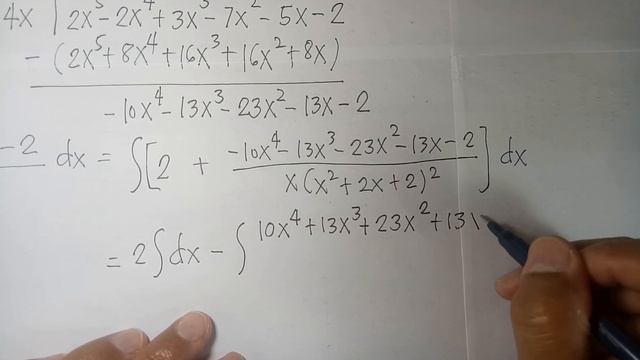 4x | 2x⁵ - 2x⁴ + 3x³ - 7x² - 5x - 2
- (2x⁵ + 8x⁴ + 16x³ + 16x² + 8x)
-10x⁴ - 13x³ - 23x² - 13x - 2
-2 dx = ∫[2 + (-10x⁴ - 13x³ - 23x² - 13x - 2)/(x(x² + 2x + 2)²)] dx
= 2∫dx - ∫ 10x⁴ + 13x³ + 23x² + 13